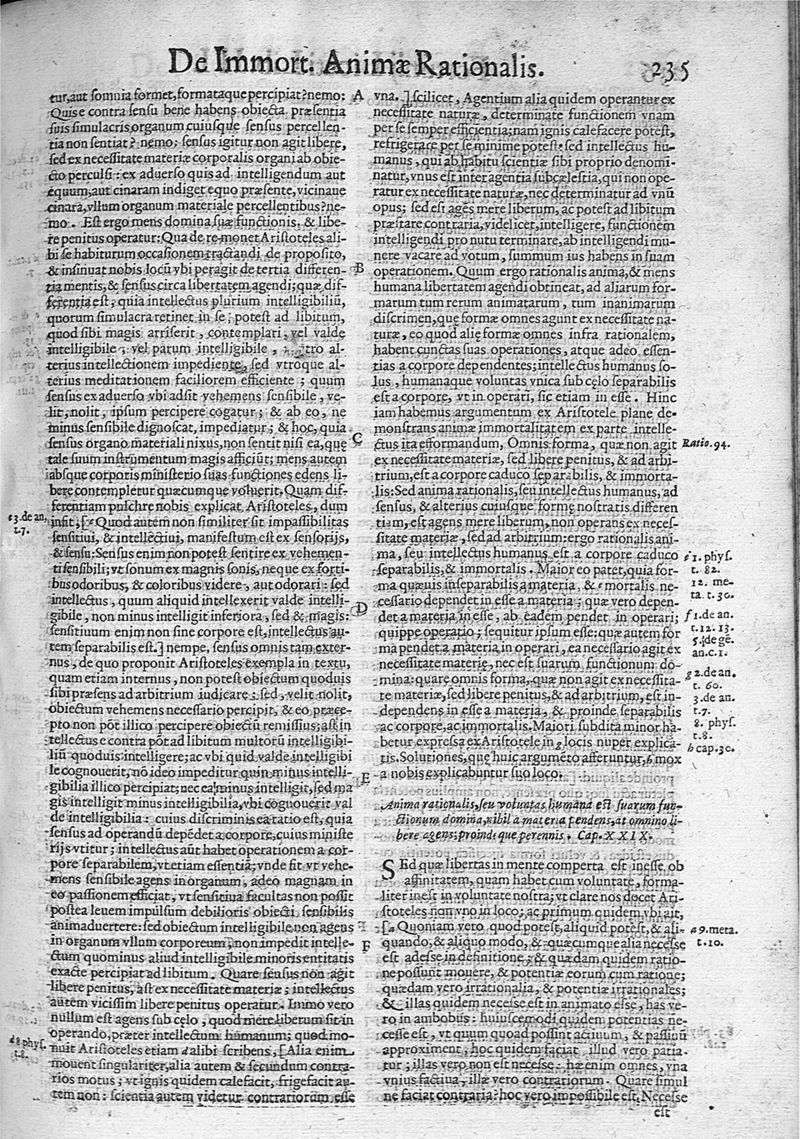 De Immort. Animæ Rationalis.
235
tur, aut somnia formet, formataque percipiat? nemo:
Quis e contra sensu bene habens obiecta præsentia
suis simulacris, organum cuiusque sensus percellen-
tia non sentiat? nemo; sensus igitur non agit libere,
sed ex necessitate materiæ corporalis organi ab obie-
cto perculsi: ex aduerso quis ad intelligendum aut
equum, aut cinaram indiget equo præsente, vicinaue
cinara, vllum organum materiale percellentibus? ne-
mo. Est ergo mens domina suæ functionis, & libe-
re penitus operatur: Qua de re monet Aristoteles ali-
bi se habiturum occasionem tractandi de proposito,
& insinuat nobis locũ vbi peragit de tertia differen-
tia mentis, & sensus circa libertatem agendi; quæ dif-
ferentia est; quia intellectus plurium intelligibiliũ,
quorum simulacra retinet in se, potest ad libitum,
quod sibi magis arriserit, contemplari, vel valde
intelligibile, vel parum intelligibile, al-
terius intellectionem impediente, sed vtroque al-
terius meditationem faciliorem efficiente; quum
sensus ex aduerso vbi adsit vehemens sensibile, ve-
lit, nolit, ipsum percipere cogatur; & ab eo, ne
minus sensibile dignoscat, impediatur; & hoc, quia
sensus organo materiali nixus, non sentit nisi ea, quę
tale suum instrumentum magis afficiũt; mens autem
absque corporis ministerio suas functiones edens li-
bere contempletur quæcumque voluerit, Quam dif-
ferentiam pulchre nobis explicat Aristoteles, dum
e 3. de an.
t.7.
infit, [e Quod autem non similiter sit impassibilitas
sensitiui, & intellectiui, manifestum est ex sensorijs,
& sensu: Sensus enim non potest sentire ex vehemen-
ti sensibili; vt sonum ex magnis sonis, neque ex forti-
bus odoribus, & coloribus videre, aut odorari: sed
intellectus, quum aliquid intellexerit valde intelli-
gibile, non minus intelligit inferiora, sed & magis:
sensitiuum enim non sine corpore est, intellectus au-
tem separabilis est.] nempe, sensus omnis tam exter-
nus, de quo proponit Aristoteles exempla in textu,
quam etiam internus, non potest obiectum quoduis
sibi præsens ad arbitrium iudicare; sed, velit nolit,
obiectum vehemens necessario percipit, & eo præce-
pto non põt illico percipere obiectũ remissius; ast in
tellectus e contra põt ad libitum multorũ intelligibi-
liũ quoduis intelligere; ac vbi quid valde intelligibi
le cognouerit, nõ ideo impeditur quin minus intelli-
gibilia illico percipiat; nec ea minus intelligit, sed ma
gis intelligit minus intelligibilia, vbi cognouerit val
de intelligibilia: cuius discriminis ea ratio est, quia
sensus ad operandũ depẽdet a corpore, cuius ministe
rijs vtitur; intellectus aũt habet operationem a cor-
pore separabilem, vt etiam essentiã; vnde fit vt vehe-
mens sensibile agens in organum, adeo magnam in
eo passionem efficiat, vt sensitiua facultas non possit
postea leuem impulsum debilioris obiecti sensibilis
animaduertere: sed obiectum intelligibile non agens
in organum vllum corporeum, non impedit intelle-
ctum quominus aliud intelligibile minoris entitatis
exacte percipiat ad libitum. Quare sensus non agit
libere penitus, ast ex necessitate materiæ; intellectus
autem vicissim libere penitus operatur. Immo vero
nullum est agens sub cęlo, quod mere liberum sit in
operando, præter intellectum humanum; quod mo-
d 8 phys.
t.8.
nuit Aristoteles etiam d alibi scribens, [Alia enim
mouent singulariter, alia autem & secundum contra-
rios motus; vt ignis quidem calefacit, frigefacit au-
tem non: scientia autem videtur contrariorum esse
A
B
C
D
E
F
vna.] scilicet, Agentium alia quidem operantur ex
necessitate naturæ, determinate functionem vnam
per se semper efficientia; nam ignis calefacere potest,
refrigerare per se minime potest: sed intellectus hu-
manus, qui ab habitu scientiæ sibi proprio denomi-
natur, vnus est inter agentia subcælestia, qui non ope-
ratur ex necessitate naturæ, nec determinatur ad vnũ
opus; sed est agẽs mere liberum, ac potest ad libitum
præstare contraria, videlicet, intelligere, functionem
intelligendi pro nutu terminare, ab intelligendi mu-
nere vacare ad votum, summum ius habens in suam
operationem. Quum ergo rationalis anima, & mens
humana libertatem agendi obtineat, ad aliarum for-
marum tum rerum animatarum, tum inanimarum
discrimen, quę formæ omnes agunt ex necessitate na-
turæ, eo quod alię formæ omnes infra rationalem,
habent cunctas suas operationes, atque adeo essen-
tias a corpore dependentes; intellectus humanus so-
lus, humanaque voluntas vnica sub cęlo separabilis
est a corpore, vt in operari, sic etiam in esse. Hinc
iam habemus argumentum ex Aristotele plane de-
monstrans animæ immortalitatem ex parte intelle-
ctus ita efformandum, Omnis forma, quæ non agit
Ratio. 94.
ex necessitate materiæ, sed libere penitus, & ad arbi-
trium, est a corpore caduco separabilis, & immorta-
lis: Sed anima rationalis, seu intellectus humanus, ad
sensus, & alterius cuiusque formę nostratis differen
tiam, est agens mere liberum, non operans ex neces-
sitate materiæ, sed ad arbitrium: ergo rationalis ani-
ma, seu intellectus humanus est a corpore caduco
separabilis, & immortalis. Maior eo patet, quia for-
ma quæuis inseparabilis a materia, & mortalis ne-
cessario dependet in esse a materia; quæ vero depen-
det a materia in esse, ab eadem pendet in operari;
quippe operatio; sequitur ipsum esse: quæ autem for
ma pendet a materia in operari, ea necessario agit ex
necessitate materię, nec est suarum functionum do-
mina: quare omnis forma, quæ non agit ex necessita-
te materiæ, sed libere penitus, & ad arbitrium, est in-
dependens in esse a materia, & proinde separabilis
ac corpore, ac immortalis. Maiori subdita minor ha-
betur expressa ex Aristotele in g locis nuper explica-
tis. Solutiones, quę huic argumẽto afferuntur, h mox
a nobis explicabuntur suo loco.
e 1. phys.
t. 82.
12. me-
ta t. 30.
f 1. de an.
t. 12. 13.
5. de ge.
an. c. 1.
g 2. de an.
t. 60.
3. de an.
t.7.
8. phys.
t.8.
h cap. 30.
Anima rationalis, seu voluntas humana est suarum fun-
ctionum domina, nihil a materia pendens, at omnino li-
bere agens; proindeque perennis. Cap. XXIX.
SEd quæ libertas in mente comperta est inesse ob
affinitatem, quam habet cum voluntate, forma-
liter inest in voluntate nostra; vt clare nos docet Ari-
stoteles non vno in loco; ac primum quidem vbi ait,
a 9. meta.
t. 10.
[a Quoniam vero quod potest, aliquid potest, & ali-
quando, & aliquo modo, & quæcumque alia necesse
est adesse in definitione; & quædam quidem ratio-
ne possunt mouere, & potentiæ eorum cum ratione;
quædam vero irrationalia, & potentiæ irrationales;
& illas quidem necesse est in animato esse, has ve-
ro in ambobus: huiuscemodi quidem potentias ne-
cesse est, vt quum quoad possint actiuum, & passiuũ
approximent, hoc quidem faciat, illud vero patia-
tur; illas vero non est necesse: hæ enim omnes, vna
vnius factiua, illæ vero contrariorum. Quare simul
ne faciat contraria? hoc vero impossibile est. Necesse
est